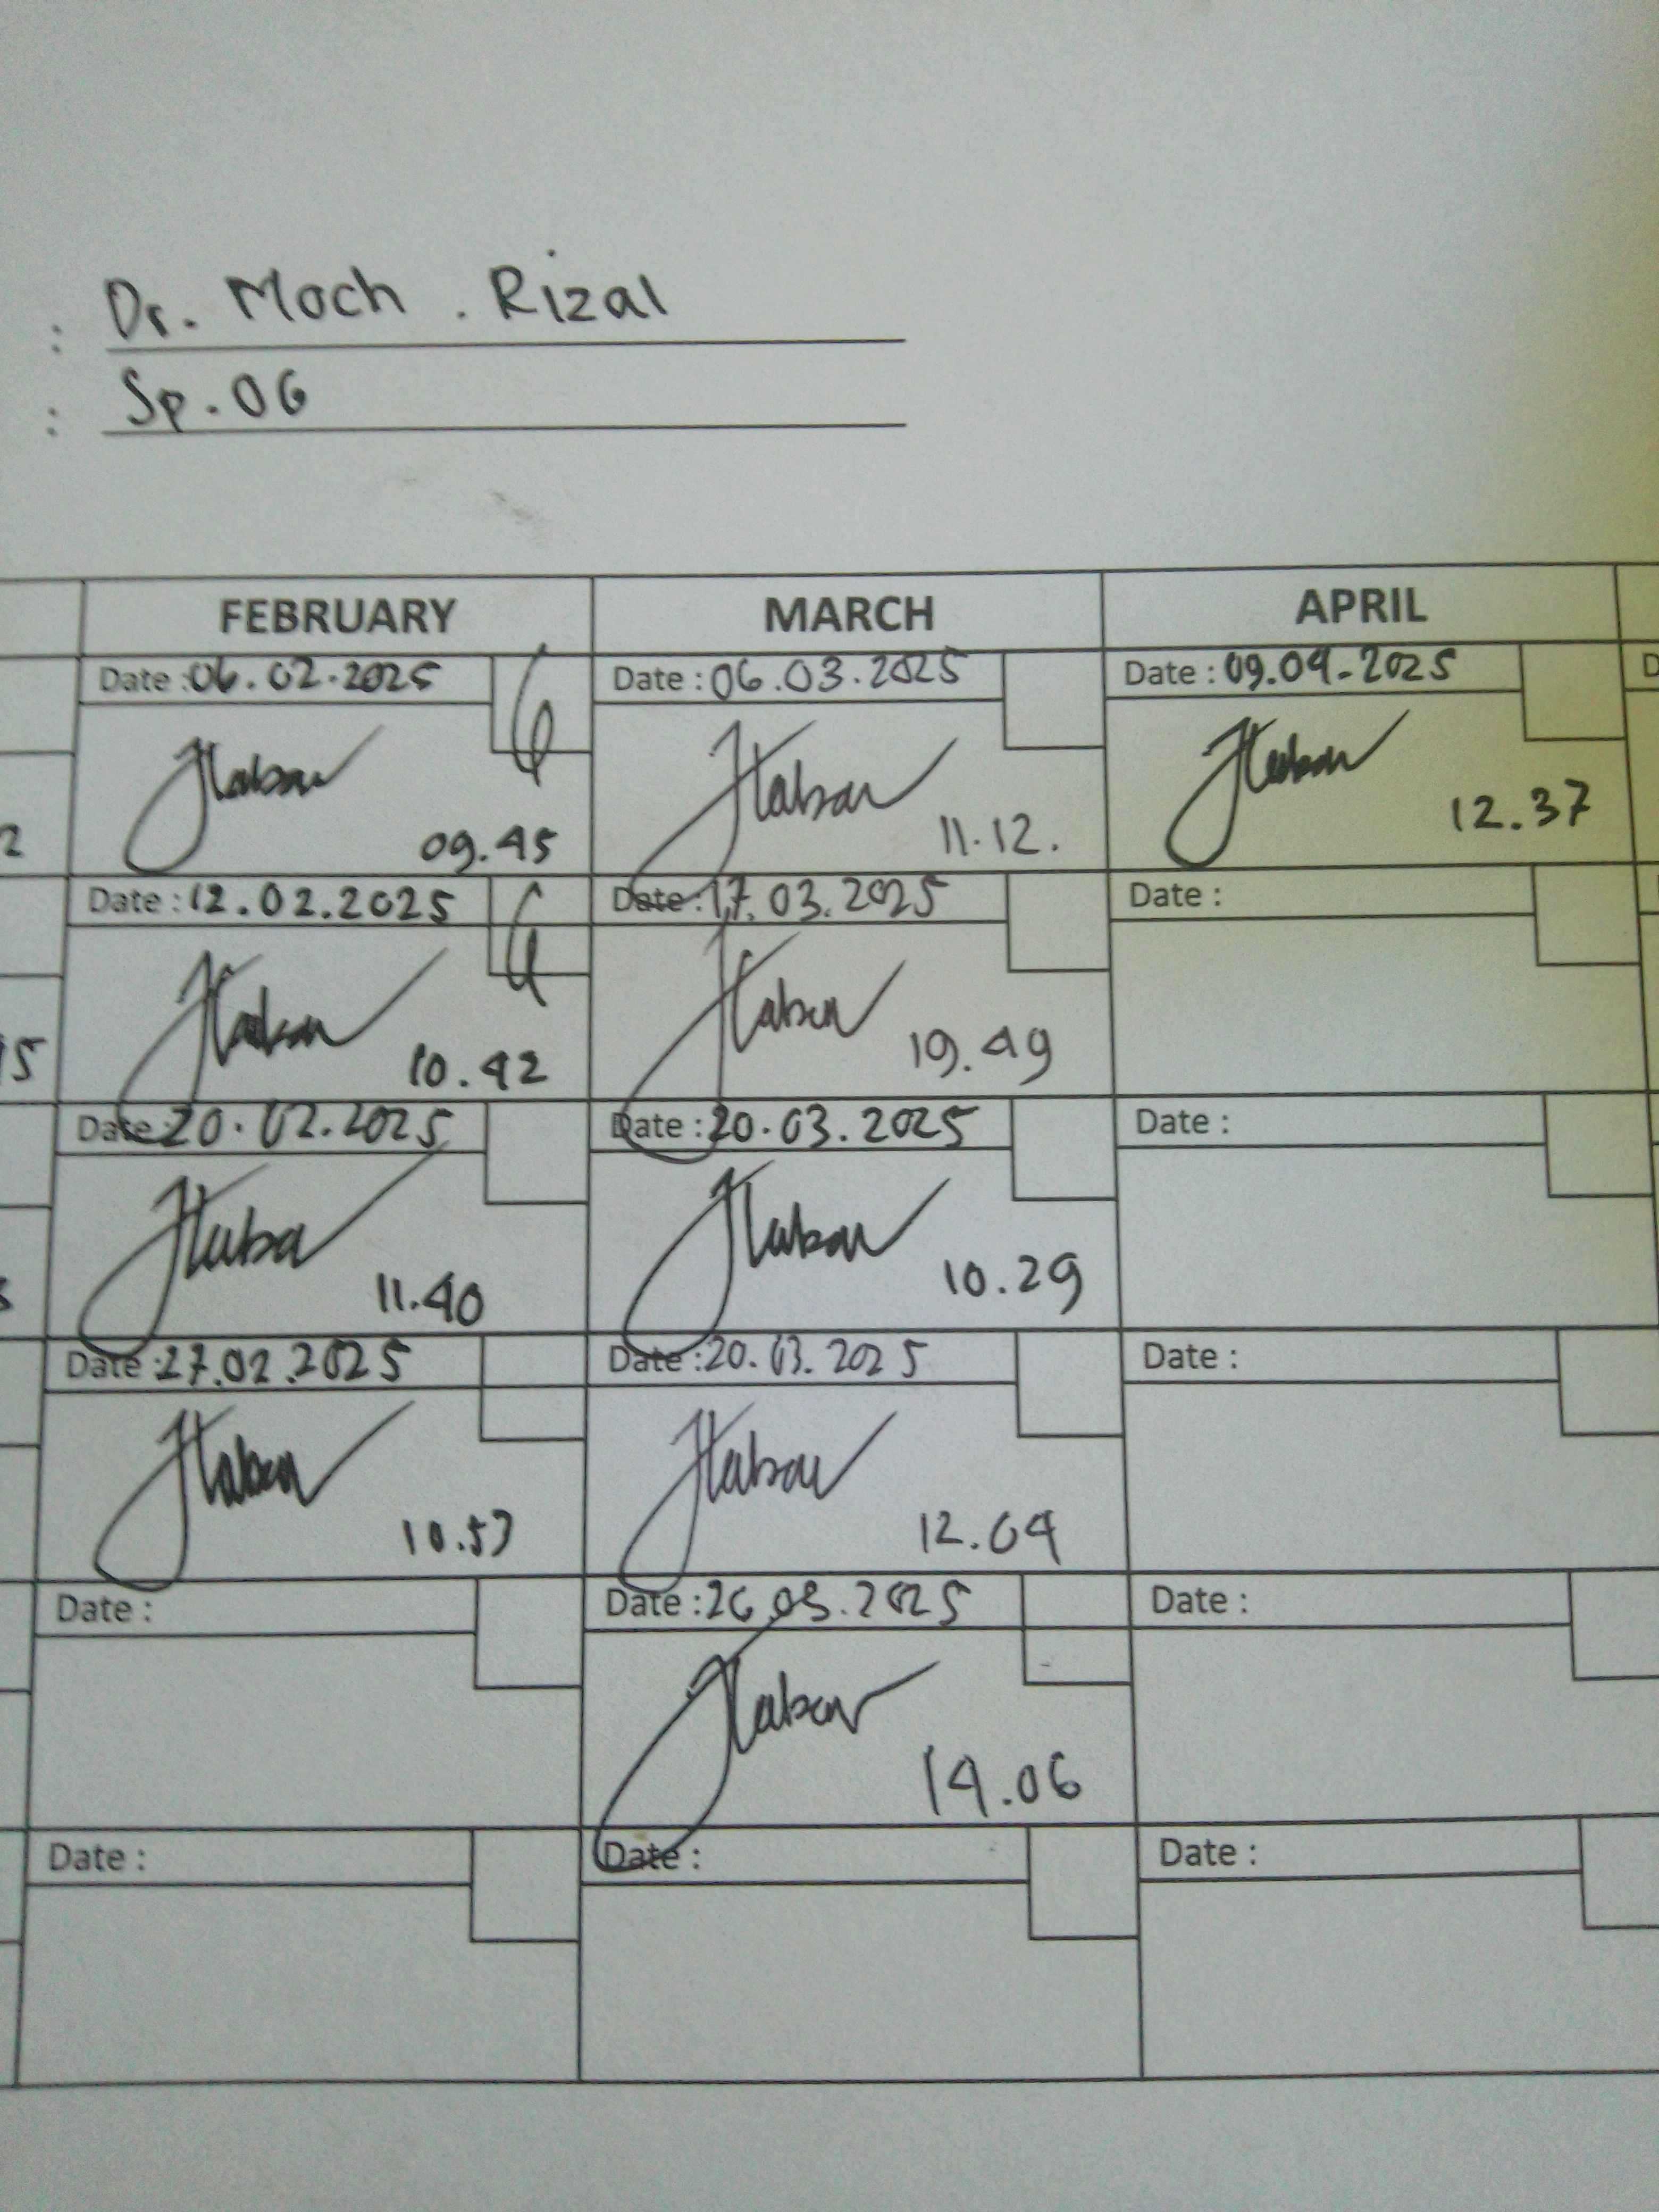 : Dr. Moch. Rizal
: Sp.OG
FEBRUARY MARCH APRIL
Date : 06.02.2025 Date : 06.03.2025 Date : 09.04-2025
2 09.45 11.12. 12.37
Date : 12.02.2025 Date : 17.03.2025 Date :
15 10.42 19.49
Date : 20.02.2025 Date : 20.03.2025 Date :
11.40 10.29
Date : 27.02.2025 Date : 20.03.2025 Date :
10.57 12.04
Date : Date : 26.03.2025 Date :
14.06
Date : Date : Date :